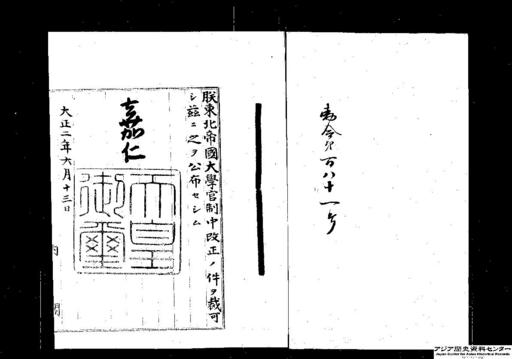 勅令第百八十一号
朕東北帝國大學官制中改正ノ件ヲ裁可
シ茲ニ之ヲ公布セシム
嘉仁
天皇御璽
大正二年六月十三日
内閣
アジア歴史資料センター
Japan Center for Asian Historical Records